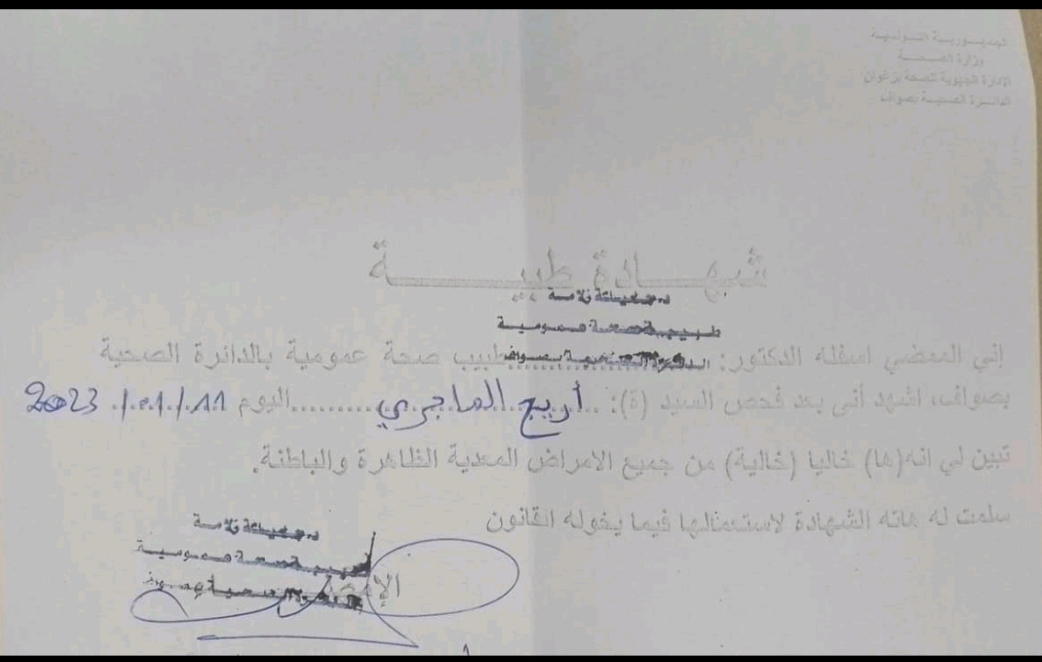 الجمهورية التونسية
وزارة الصحة
الادارة الجهوية للصحة بزغوان
الدائرة الصحية بصواف
شهادة طبية
طبيبة صحة عمومية
إني الممضي اسفله الدكتور: طبيب صحة عمومية بالدائرة الصحية
بصواف، اشهد أني بعد فحص السيد (ة): أريج الماجري اليوم 11/01/2023
تبين لي انه(ها) خاليا (خالية) من جميع الامراض المعدية الظاهرة والباطنة.
سلمت له هاته الشهادة لاستعمالها فيما يخوله القانون
صحة عمومية